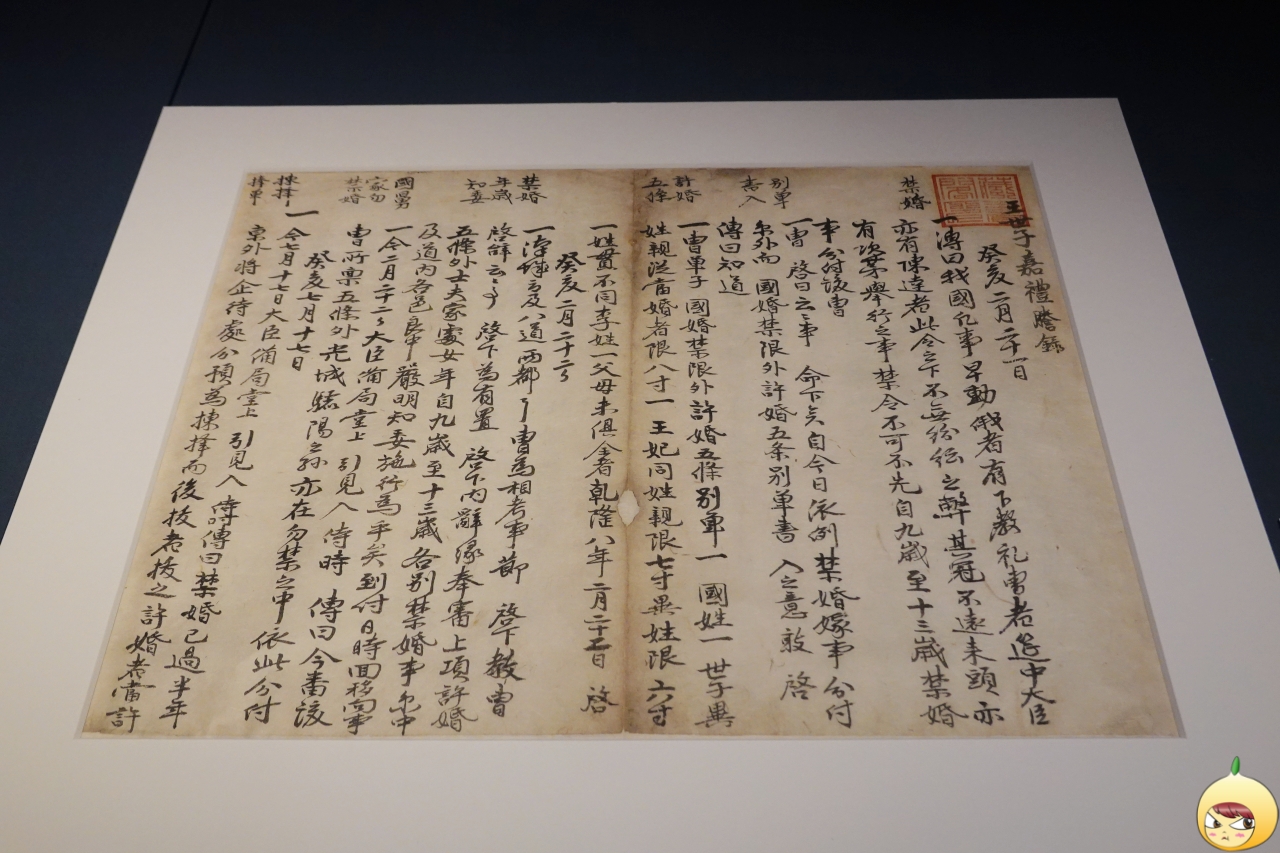 王世子嘉禮謄錄
癸亥二月二十一日
禁婚
一傳曰我國凡事早動 者有下敎礼曹者 中大臣
亦有陳達者此令之下不無紛紜之弊其冠不遠來頭亦
有次第擧行之事禁令不可不先自九歲至十三歲禁婚
事分付該曹
別單
書入
一曹 啓曰云云事 命下矣自今日依例禁婚嫁事分付
京外而 國婚禁限外許婚五条別單書 入之意敢 啓
傳曰知道
許婚
五條
一曹單子 國婚禁限外許婚五條別單 一 國姓一 世子異
姓親從當婚者限八寸一 王妃同姓親限七寸異姓限六寸
一姓貫不同李姓一父母未俱全者乾隆八年二月二十二日 啓
癸亥二月二十二日
禁婚
年歲
知委
一 及八道兩都了曹爲相考事節 啓下敎曹
啓辭云云事 啓下爲有置 啓下內辭緣奉審上項許婚
五條外士夫家處女年自九歲至十三歲各別禁婚事京中
及道內各邑良中嚴明知委施行爲乎矣到付日時回移向事
國舅
家勿
禁婚
一今二月二十二日大臣備局堂上 引見入 侍時 傳曰今番該
曹所稟五條外 之孫亦在勿禁之中 依此分付
癸亥七月十七日
揀擇
擇單
一今七月十七日大臣備局堂上 引見入 侍時傳曰禁婚已過半年
京外將企待處分預爲揀擇而後拔者拔之許婚者當許